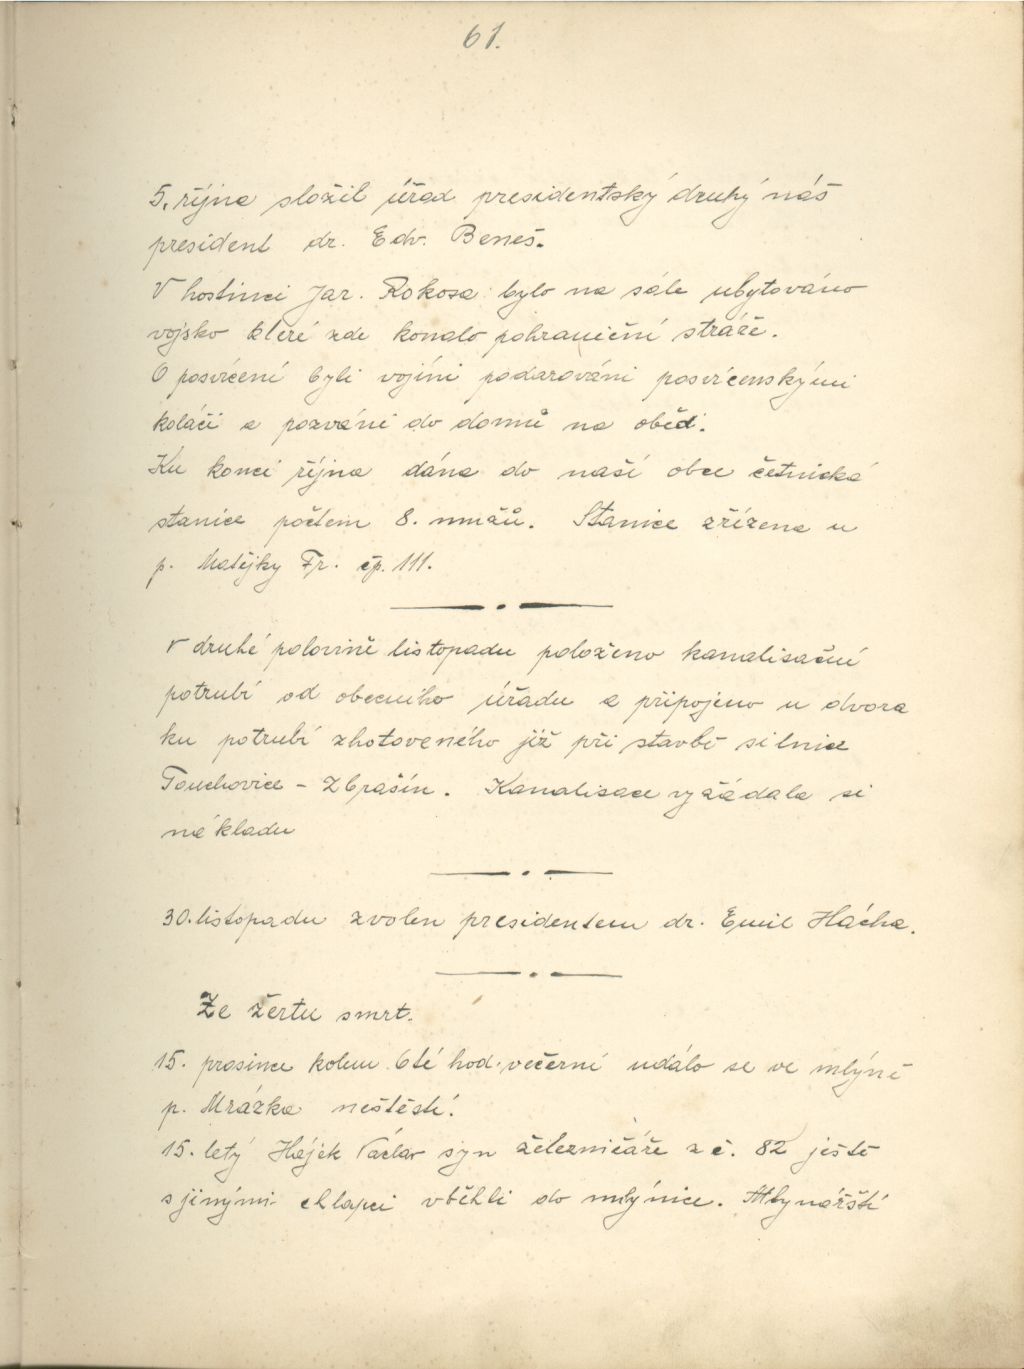 61.
5. října složil úřad presidentský druhý náš
president dr. Edv. Beneš.
V hostinci Jar. Rokosa bylo na sále ubytováno
vojsko které zde konalo pohraniční stráže.
O posvícení byli vojíni podarováni posvícenskými
koláči a pozváni do domů na oběd.
Ku konci října dána do naší obce četnická
stanice počtem 8. mužů. Stanice zřízena u
p. Matějky Fr. čp. 111.
V druhé polovině listopadu položeno kanalisační
potrubí od obecního úřadu a připojeno u dvora
ku potrubí zhotoveného již při stavbě silnice
Touchovice - Zbrašín. Kanalisace vyžádala si
nákladu
30. listopadu zvolen presidentem dr. Emil Hácha.
Ze žertu smrt.
15. prosince kolem 6té hod. večerní událo se ve mlýně
p. Mrázka neštěstí.
15. letý Hájek Václav syn železničáře z č. 82 ještě
s jinými chlapci vběhli do mlýnice. Mlynářští